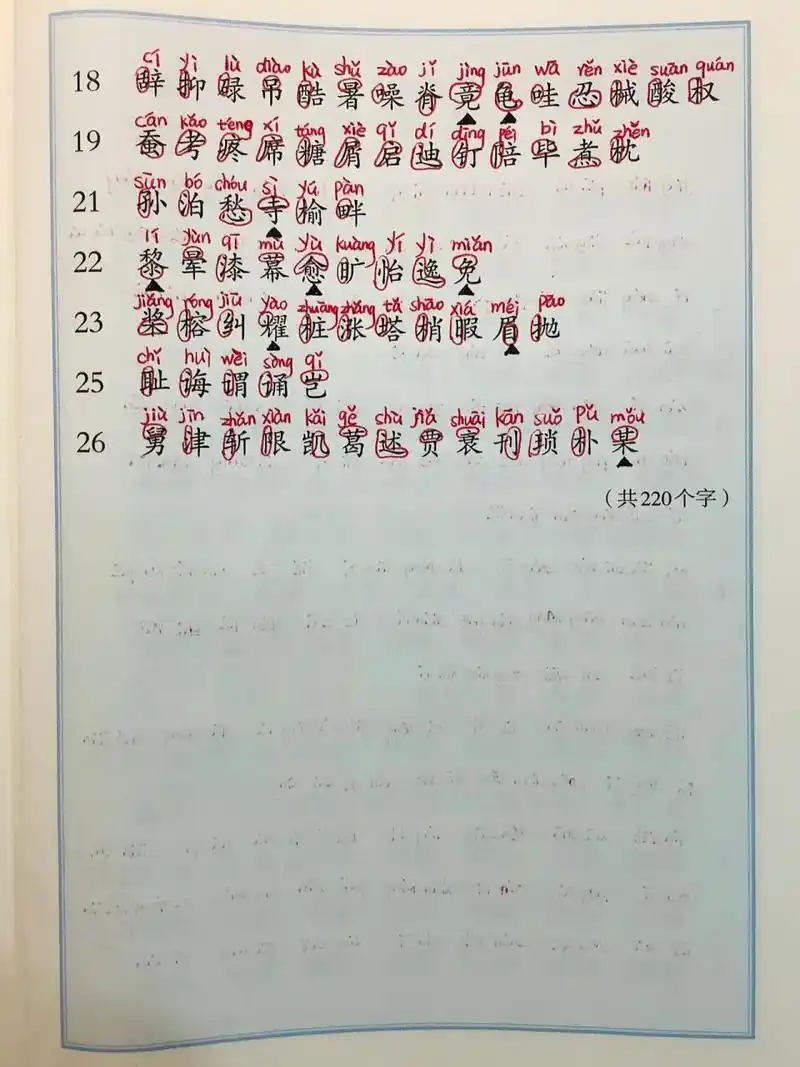 cí yì lù diào kù shǔ zào jǐ jìng jūn wā rěn xiè suān quán
18 辞 抑 碌 吊 酷 暑 噪 脊 竟 龟 哇 忍 械 酸 权
cán kǎo téng xí táng xiè qǐ dí dīng péi bì zhǔ zhěn
19 蚕 考 疼 席 糖 屑 启 迪 钉 陪 毕 煮 枕
sūn bó chóu sì yú pàn
21 孙 泊 愁 寺 榆 畔
lí yùn qī mù yù kuàng yí yì miǎn
22 黎 晕 漆 幕 愈 旷 怡 逸 免
jiǎng róng jiū yào zhuāng zhǎng tǎ shāo xiá méi pāo
23 桨 榕 纠 耀 桩 涨 塔 梢 暇 眉 抛
chǐ huì wèi sòng qǐ
25 耻 诲 谓 诵 岂
jiù jīn zhǎn xiàn kǎi gě shù jiǎ shuāi kān suǒ pǔ mǒu
26 舅 津 斩 限 凯 葛 述 贾 衰 刊 琐 朴 某
（共220个字）